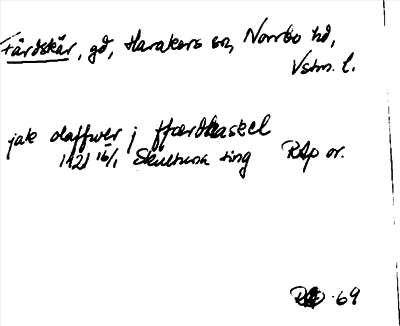 Färdskär, gd, Harakers sn, Norrbo hd,
Vstm. l.
jak olaffwer j ffærdhaskel
1421 16/1 Skultuna ting RAp or.
69